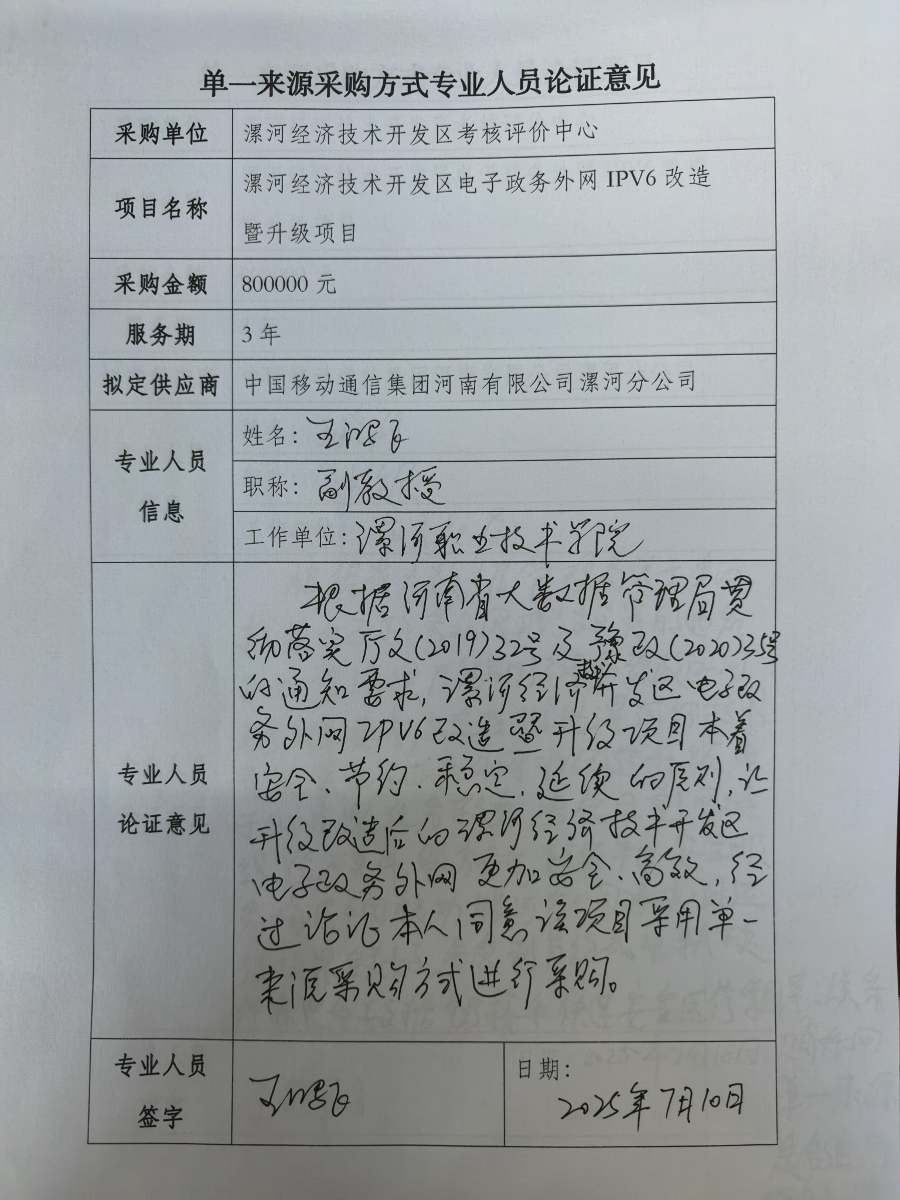 单一来源采购方式专业人员论证意见
采购单位
漯河经济技术开发区考核评价中心
项目名称
漯河经济技术开发区电子政务外网 IPV6 改造
暨升级项目
采购金额
800000 元
服务期
3 年
拟定供应商
中国移动通信集团河南有限公司漯河分公司
专业人员
信息
姓名：王
职称：副教授
工作单位：漯河职业技术学院
专业人员
论证意见
根据河南省大数据管理局贯
彻落实厅文(2019)32号及豫政(2020)35号
的通知要求，漯河经济技术开发区电子政
务外网IPV6改造暨升级项目本着
安全、节约、稳定、延续的原则，让
升级改造后的漯河经济技术开发区
电子政务外网更加安全、高效，经
过论证本人同意该项目采用单一
来源采购方式进行采购。
专业人员
签字
王
日期：
2025年7月10日